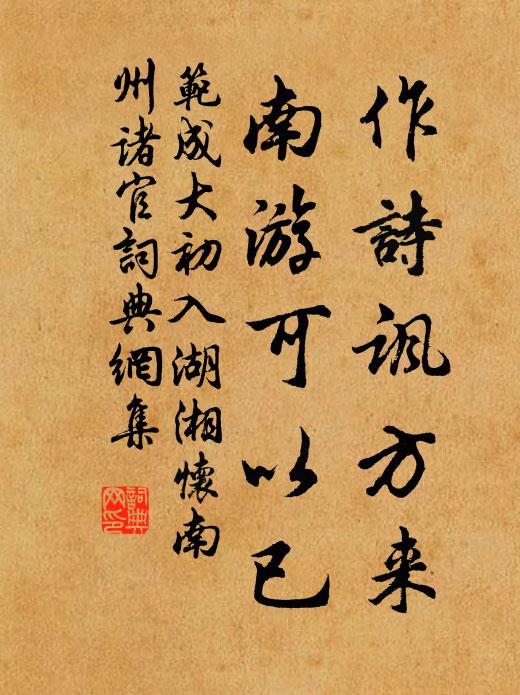 作詩諷方来
南游可以已
範成大初入湖湘懷南
州諸官詞典網集
詞典
网印